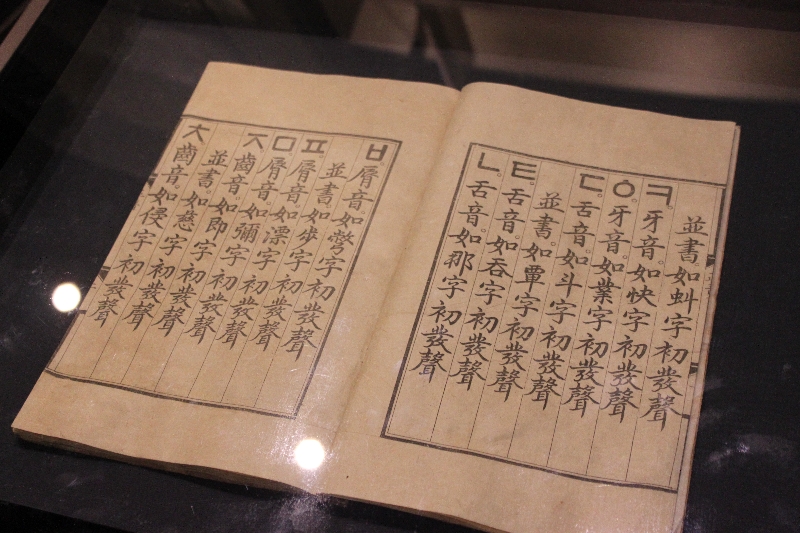 並書如虯字初發聲
ㅋ。牙音。如快字初發聲
ㆁ。牙音。如業字初發聲
ㄷ。舌音。如斗字初發聲
並書。如覃字初發聲
ㅌ。舌音。如呑字初發聲
ㄴ。舌音。如那字初發聲
ㅂ。脣音。如彆字初發聲
並書。如步字初發聲
ㅍ。脣音。如漂字初發聲
ㅁ。脣音。如彌字初發聲
ㅈ。齒音。如即字初發聲
並書。如慈字初發聲
ㅊ。齒音。如侵字初發聲